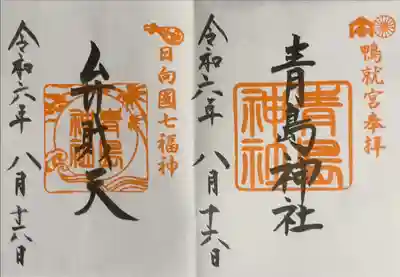 鴨就宮奉拝
青島神社
青島
神社
令和六年 八月十六日
日向國七福神
弁財天
青島
神社
令和六年 八月十六日